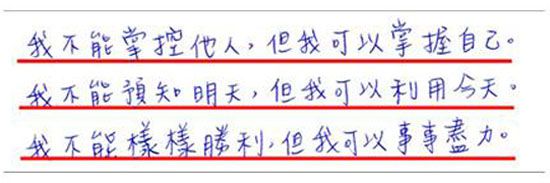 我不能掌控他人，但我可以掌握自己。
我不能預知明天，但我可以利用今天。
我不能樣樣勝利，但我可以事事盡力。